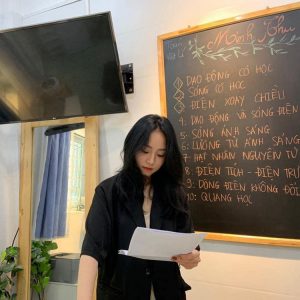 Toán
Vật Lí
Minh Thu
1. DAO ĐỘNG CƠ HỌC
2. SÓNG CƠ HỌC
3. ĐIỆN XOAY CHIỀU
4. DAO ĐỘNG VÀ SÓNG ĐIỆN
5. SÓNG ÁNH SÁNG
6. LƯỢNG TỬ ÁNH SÁNG
7. HẠT NHÂN NGUYÊN TỬ
8. ĐIỆN TÍCH - ĐIỆN TRƯ
9. DÒNG ĐIỆN KHÔNG ĐỔI
10. QUANG HỌC